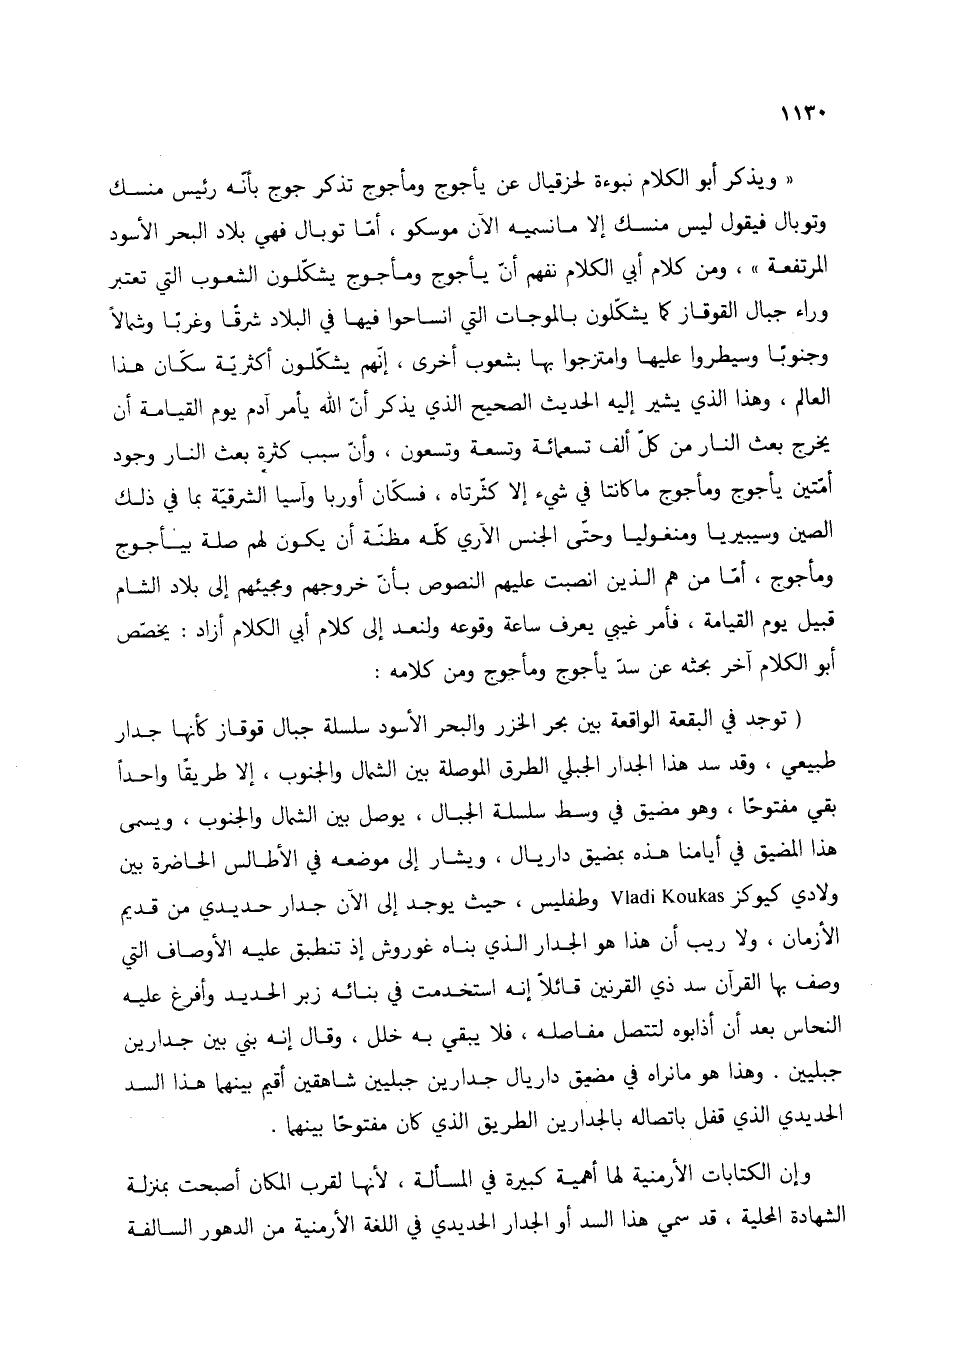 ١١٣٠
« ويذكر أبو الكلام نبوءة لحزقيال عن يأجوج ومأجوج تذكر جوج بأنّه رئيس منسك
وتوبال فيقول ليس منسك إلا مانسميه الآن موسكو ، أمّا توبال فهي بلاد البحر الأسود
المرتفعة » ، ومن كلام أبي الكلام نفهم أنّ يأجوج ومأجوج يشكّلون الشعوب التي تعتبر
وراء جبال القوقاز كما يشكّلون بالموجات التي انساحوا فيها في البلاد شرقًا وغربًا وشمالاً
وجنوبًا وسيطروا عليها وامتزجوا بها بشعوب أخرى ، إنّهم يشكّلون أكثريّة سكّان هذا
العالم ، وهذا الذي يشير إليه الحديث الصحيح الذي يذكر أنّ الله يأمر آدم يوم القيامة أن
يخرج بعث النار من كلّ ألف تسعمائة وتسعة وتسعون ، وأنّ سبب كثرة بعث النار وجود
أمّتين يأجوج ومأجوج ماكانتا في شيء إلا كثّرتاه ، فسكّان أوربا وآسيا الشرقيّة بما في ذلك
الصين وسيبيريا ومنغوليا وحتّى الجنس الآري كلّه مظنّة أن يكون لهم صلة بيأجوج
ومأجوج ، أمّا من هم الذين انصبت عليهم النصوص بأنّ خروجهم ومجيئهم إلى بلاد الشام
قبيل يوم القيامة ، فأمر غيبي يعرف ساعة وقوعه ولنعد إلى كلام أبي الكلام أزاد : يخصّص
أبو الكلام آخر بحثه عن سدّ يأجوج ومأجوج ومن كلامه :
( توجد في البقعة الواقعة بين بحر الخزر والبحر الأسود سلسلة جبال قوقاز كأنها جدار
طبيعي ، وقد سد هذا الجدار الجبلي الطرق الموصلة بين الشمال والجنوب ، إلا طريقًا واحداً
بقي مفتوحًا ، وهو مضيق في وسط سلسلة الجبال ، يوصل بين الشمال والجنوب ، ويسمى
هذا المضيق في أيامنا هذه بمضيق داريال ، ويشار إلى موضعه في الأطالس الحاضرة بين
ولادي كيوكز Vladi Koukas وطفليس ، حيث يوجد إلى الآن جدار حديدي من قديم
الأزمان ، ولا ريب أن هذا هو الجدار الذي بناه غوروش إذ تنطبق عليه الأوصاف التي
وصف بها القرآن سد ذي القرنين قائلاً إنه استخدمت في بنائه زبر الحديد وأفرغ عليه
النحاس بعد أن أذابوه لتتصل مفاصله ، فلا يبقي به خلل ، وقال إنه بني بين جدارين
جبليين . وهذا هو مانراه في مضيق داريال جدارين جبليين شاهقين أقيم بينهما هذا السد
الحديدي الذي قفل باتصاله بالجدارين الطريق الذي كان مفتوحًا بينهما .
وإن الكتابات الأرمنية لها أهمية كبيرة في المسألة ، لأنها لقرب المكان أصبحت بمنزلة
الشهادة المحلية ، قد سمي هذا السد أو الجدار الحديدي في اللغة الأرمنية من الدهور السالفة